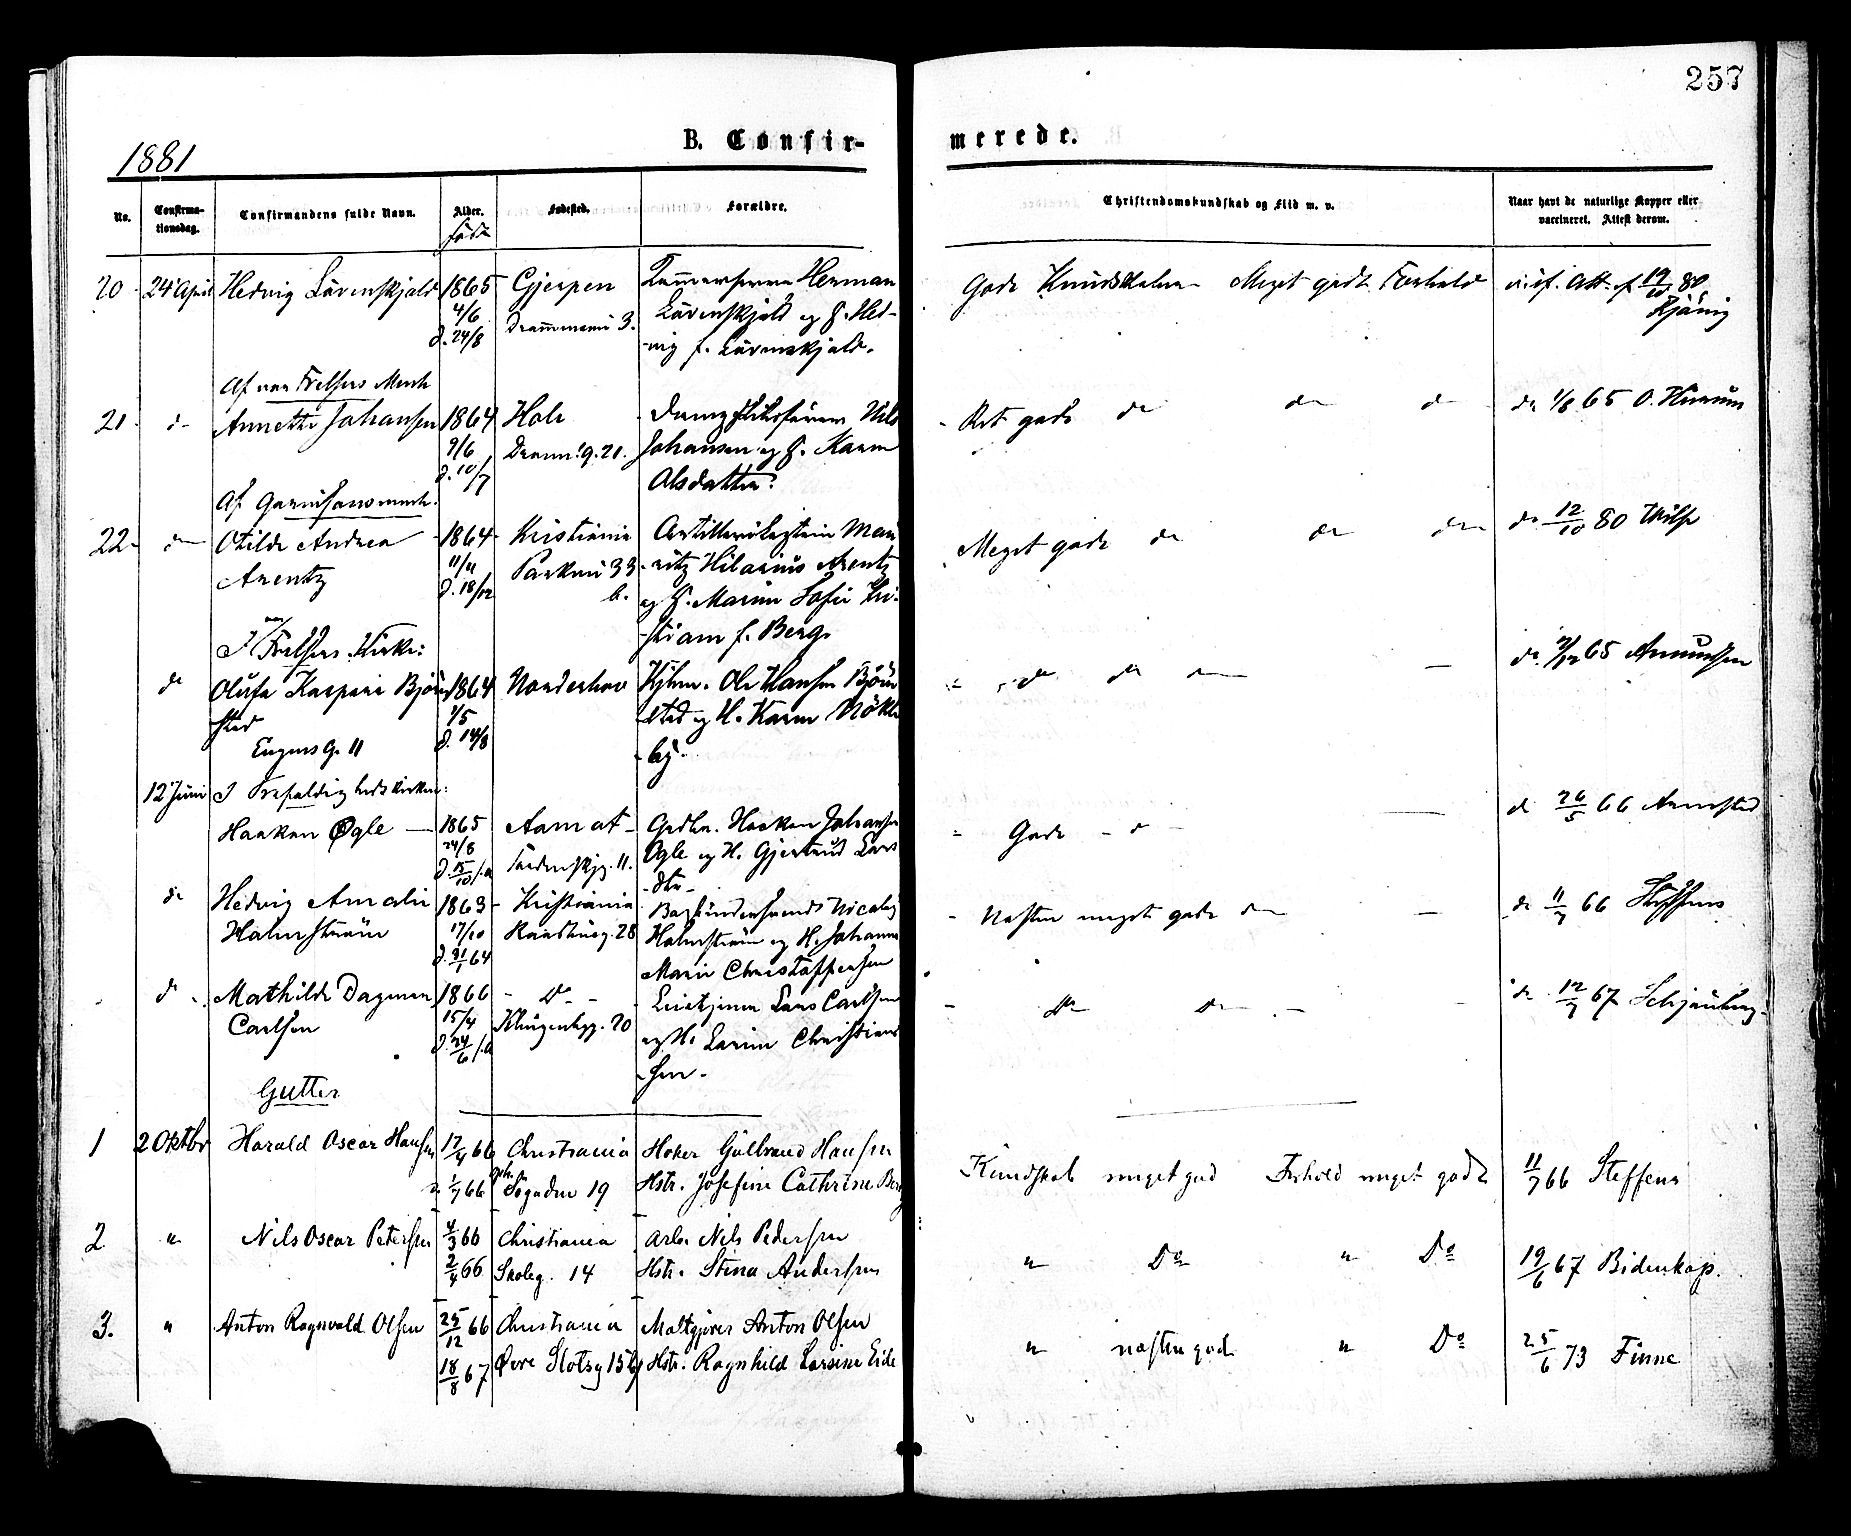 257
1881
B. Confir-
merede.
No.
Confirma-
tionsdag.
Confirmandens fulde Navn.
Alder.
født
Fødested.
Forældre.
Christendomskundskab og Flid m. v.
Naar havt de naturlige Kopper eller
vaccineret. Attest derom.
20 24 April Hedvig Lövenskjold 1865 Gjerpen Herman Gode Kundskaber Meget godt Forhold Att. 19/10 80
4/6 Drammensv 3. Lövenskjold og H. Hed-
d. 24/8 vig f. Lövenskjold.
Af vor Frelsers Menh
21 d Annette Johansen 1864 Hole Nils Ret gode do do do do 1/8 65
9/6 Dramm. 9. 21. Johansen og H. Karen
d. 10/7 Olsdatter.
Af Garnisonsmenh.
22 do Otilde Andrea 1864 Kristiania Artillerikaptein Mau Meget gode do do do do 12/10 80
Arentz 11/11 Parkvei 33 ritz Hilarius Arentz
d. 18/12 b. og H. Marine Sofie Kri-
stiane f. Berg.
I vor Frelsers Kirke:
do Kaspara Bjørn 1864 Norderhov Ole Hansen Bjørn do do do do 65 Amundsen
sted 1/5 sted og H. Karen Nökle
d. 14/8 by.
12 Juni I Trefoldighedskirken:
Haakon Øgle 1865 Aamot Grdbr. Haakon Johansen Gode do d 26/5 66
24/8 Tordenskjg. 11. Ogle og H. Gjertrud Lars
d. 15/10 dtr
do Hedvig Amalie 1863 Kristiania Nicolay Næsten meget gode do do 11/7 66 Steffens
Holmström 17/10 Raadhusg. 28 Holmström og H. Johanne
d. 31/1 64 Marie Christoffersen
d Mathilde Dagmar 1866 Do Lars Carlsen Do Do do 12/7 67
Carlsen 15/4 Klingenbgg. 20 og H. Larine Christian
d. 24/6 sen.
Gutter
1 2 Oktbr Harald Oscar Hansen 17/4 66 Christiania Høker Gulbrand Hansen Kundskab meget god Forhold meget godt 11/7 66 Steffens
1/7 66 Sogadn 19 Hstr. Josefine Cathrine Berg
2 " Nils Oscar Petersen 4/3 66 Christiania Arb. Nils Pedersen " Do " Do 19/6 67 Bidenkap.
2/4 66 Skoleg. 14 Hstr. Stina Andersen
3. " Anton Ragnvald Olsen 25/12 66 Christiania Maltgjører Anton Olsen " næsten god " Do 25/6 73 Finne
18/8 67 Øvre Slotsg 15 Hstr. Ragnhild Larsine Eide